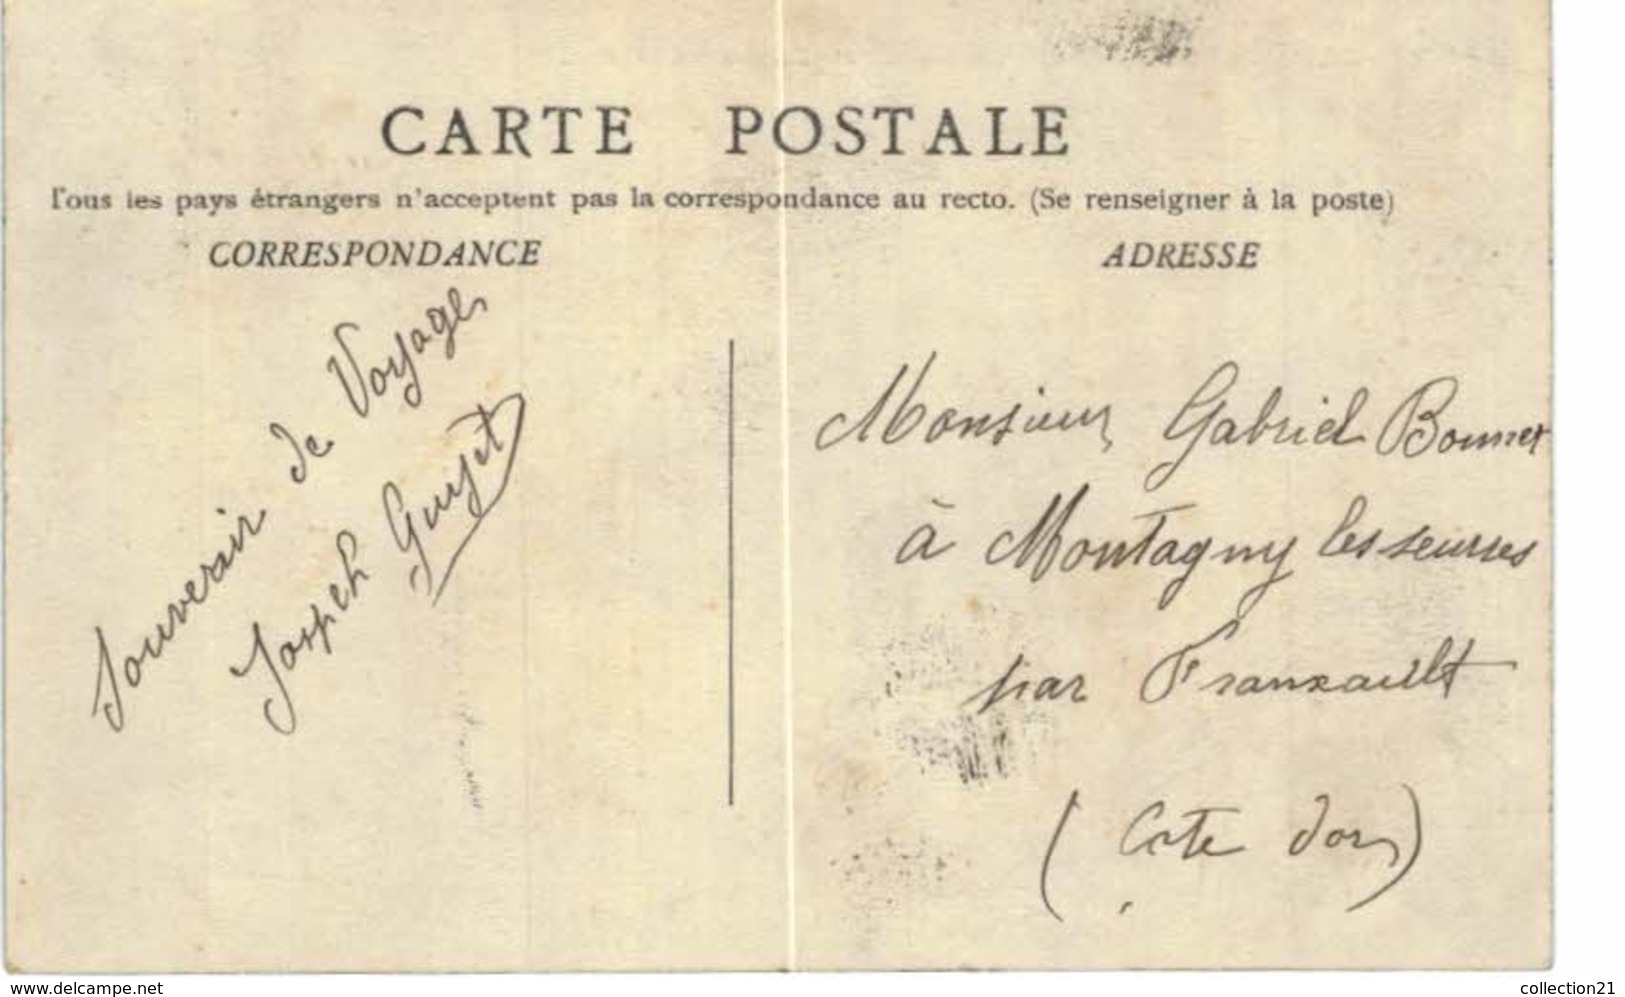 CARTE POSTALE
Tous les pays étrangers n'acceptent pas la correspondance au recto. (Se renseigner à la poste)
CORRESPONDANCE
ADRESSE
Souverair de Voyage
Jospeh Guyet
Monsieur Gabriel Bonnet
à Montagny les seurres
par Franxault
(Cote dor)
www.delcampe.net
collection21